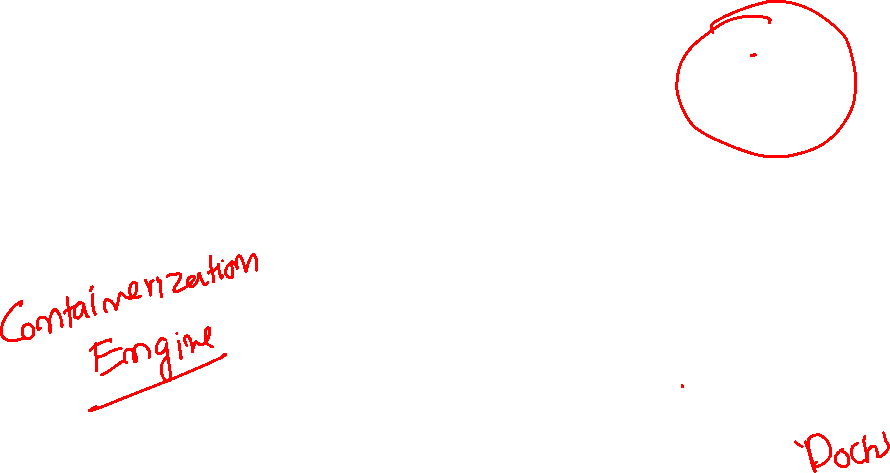 Containerization
Engine